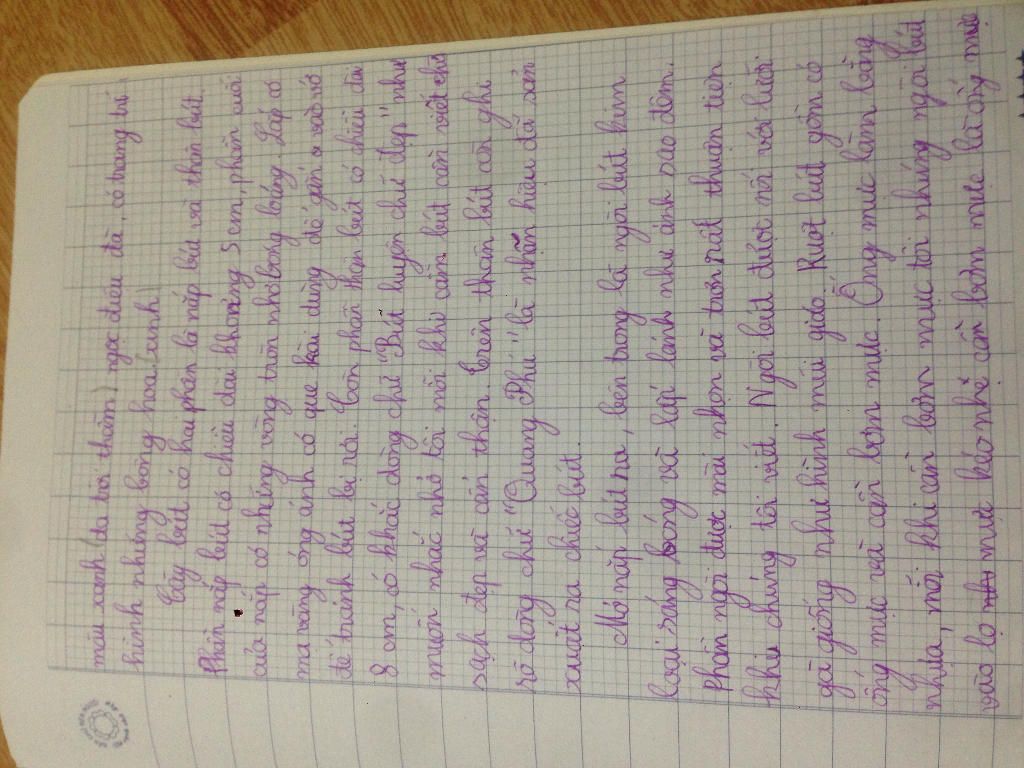 màu xanh (da trời thẫm) ngọc điệu đà, có trang trí
hình những bông hoa (xinh)
Cây bút có hai phần là nắp bút và thân bút.
Phần nắp bút có chiều dài khoảng 5 cm, phần cuối
của nắp có những vòng tròn nhỏ bóng loáng. Lắp có
mạ vàng óng ánh có que kài dùng để gắn vào vở
để tránh bút bị rơi. Còn phần thân bút có chiều dài
8 cm, có khắc dòng chữ "Bút luyện chữ đẹp" như
muốn nhắc nhở tôi mỗi khi cầm bút cần viết chữ
sạch đẹp và cẩn thận. Trên thân bút còn ghi
rõ dòng chữ "Quang Phú" là nhãn hiệu đã sản
xuất ra chiếc bút.
Mở nắp bút ra, bên trong là ngòi bút kim
loại sáng bóng và lấp lánh như ánh sao đêm.
Phần ngòi được mài nhọn và trơn rất thuận tiện
khi chúng tôi viết. Ngòi bút được nối với lưỡi
gà giống như hình mũi giáo. Ruột bút gồm có
ống mực và cần bơm mực. Ống mực làm bằng
nhựa, mỗi khi cần bơm mực tôi nhúng ngòi bút
vào lọ mực kéo nhẹ cần bơm mực là ống mực